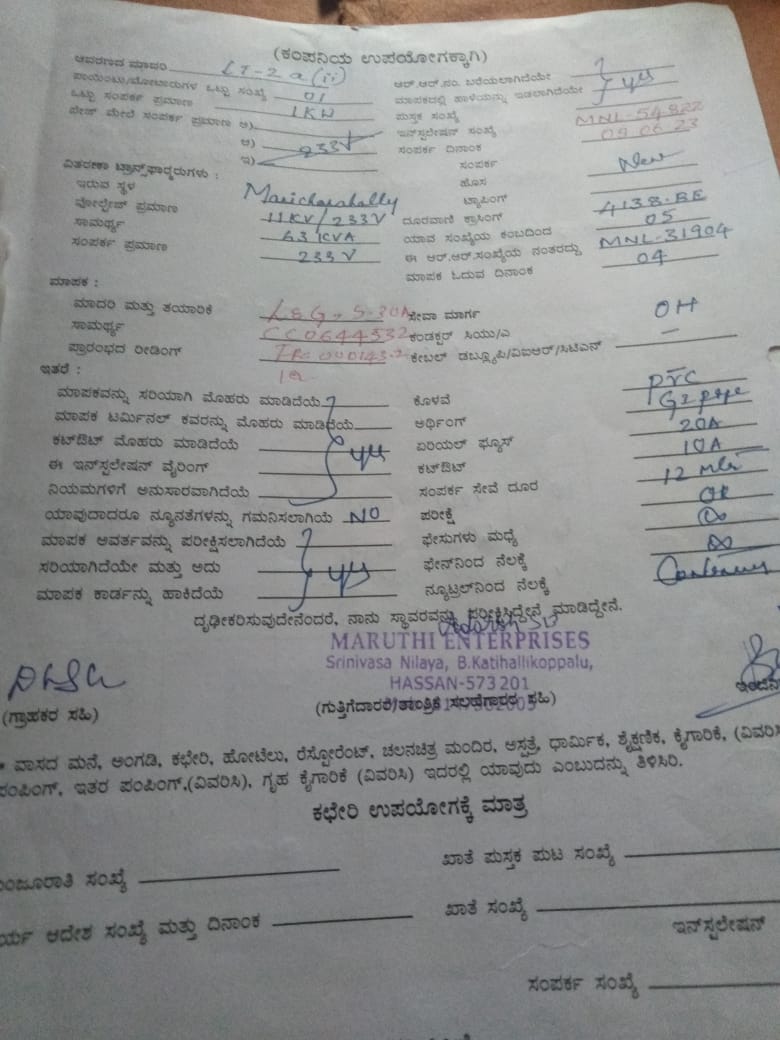 (ಕಂಪನಿಯ ಉಪಯೋಗಕ್ಕಾಗಿ)
ಆವರಣದ ಮಾದರಿ LT-2a(ii) ಆರ್.ಆರ್.ನಂ. ಬರೆಯಲಾಗಿದೆಯೇ
ಪಾಯಿಂಟು/ಮೋಟಾರುಗಳ ಒಟ್ಟು ಸಂಖ್ಯೆ 01 ಮಾಪಕದಲ್ಲಿ ಹಾಳೆಯನ್ನು ಇಡಲಾಗಿದೆಯೇ yes
ಒಟ್ಟು ಸಂಪರ್ಕ ಪ್ರಮಾಣ 1KW ಪುಸ್ತಕ ಸಂಖ್ಯೆ
ಫೇಜ್ ಮೇಲೆ ಸಂಪರ್ಕ ಪ್ರಮಾಣ ಅ) ಇನ್‌ಸ್ಟಲೇಷನ್ ಸಂಖ್ಯೆ MNL-54822
ಆ) 233V ಸಂಪರ್ಕ ದಿನಾಂಕ 09 06 23
ಇ) ಸಂಪರ್ಕ
ವಿತರಣಾ ಟ್ರಾನ್ಸ್‌ಫಾರ್ಮರುಗಳು : ಹೊಸ New
ಇರುವ ಸ್ಥಳ ಟ್ಯಾಪಿಂಗ್
ವೋಲ್ಟೇಜ್ ಪ್ರಮಾಣ 11KV/233V ದೂರವಾಣಿ ಕ್ರಾಸಿಂಗ್
ಸಾಮರ್ಥ್ಯ 63 KVA ಯಾವ ಸಂಖ್ಯೆಯ ಕಂಬದಿಂದ 05
ಸಂಪರ್ಕ ಪ್ರಮಾಣ 233V ಈ ಆರ್.ಆರ್.ಸಂಖ್ಯೆಯ ನಂತರದ್ದು MNL-31904
ಮಾಪಕ ಓದುವ ದಿನಾಂಕ 04
ಮಾಪಕ :
ಮಾದರಿ ಮತ್ತು ತಯಾರಿಕೆ L&G, 5-30A ಸೇವಾ ಮಾರ್ಗ OH
ಸಾಮರ್ಥ್ಯ ಕಂಡಕ್ಟರ್ ಸಿಯು/ಎ —
ಪ್ರಾರಂಭದ ರೀಡಿಂಗ್ ಕೇಬಲ್ ಡಬ್ಲ್ಯೂಪಿ/ವಿಐಆರ್/ಸಿಟಿಎಸ್
ಇತರೆ :
ಮಾಪಕವನ್ನು ಸರಿಯಾಗಿ ಮೊಹರು ಮಾಡಿದೆಯೆ ಕೊಳವೆ PVC
ಮಾಪಕ ಟರ್ಮಿನಲ್ ಕವರನ್ನು ಮೊಹರು ಮಾಡಿದೆಯೆ ಅರ್ಥಿಂಗ್ GI pipe
ಕಟ್‌ಔಟ್ ಮೊಹರು ಮಾಡಿದೆಯೆ yes ಏರಿಯಲ್ ಫ್ಯೂಸ್ 20A
ಈ ಇನ್‌ಸ್ಟಲೇಷನ್ ವೈರಿಂಗ್ ಕಟ್‌ಔಟ್ 10A
ನಿಯಮಗಳಿಗೆ ಅನುಸಾರವಾಗಿದೆಯೆ ಸಂಪರ್ಕ ಸೇವೆ ದೂರ 12
ಯಾವುದಾದರೂ ನ್ಯೂನತೆಗಳನ್ನು ಗಮನಿಸಲಾಗಿಯೆ NO ಪರೀಕ್ಷೆ OK
ಮಾಪಕ ಆವರ್ತವನ್ನು ಪರೀಕ್ಷಿಸಲಾಗಿದೆಯೆ ಫೇಸುಗಳು ಮಧ್ಯೆ ∞
ಸರಿಯಾಗಿದೆಯೇ ಮತ್ತು ಅದು yes ಫೇಸ್‌ನಿಂದ ನೆಲಕ್ಕೆ ∞
ಮಾಪಕ ಕಾರ್ಡನ್ನು ಹಾಕಿದೆಯೆ ನ್ಯೂಟ್ರಲ್‌ನಿಂದ ನೆಲಕ್ಕೆ
ದೃಢೀಕರಿಸುವುದೇನೆಂದರೆ, ನಾನು ಸ್ಥಾವರವನ್ನು ಪರೀಕ್ಷಿಸಿದ್ದೇನೆ ಮಾಡಿದ್ದೇನೆ.
MARUTHI ENTERPRISES
Srinivasa Nilaya, B.Katihallikoppalu,
HASSAN-573201
(ಗ್ರಾಹಕರ ಸಹಿ) (ಗುತ್ತಿಗೆದಾರರ/ತಾಂತ್ರಿಕ ಸಲಹೆಗಾರರ ಸಹಿ)
* ವಾಸದ ಮನೆ, ಅಂಗಡಿ, ಕಛೇರಿ, ಹೋಟೆಲು, ರೆಸ್ಟೋರೆಂಟ್, ಚಲನಚಿತ್ರ ಮಂದಿರ, ಆಸ್ಪತ್ರೆ, ಧಾರ್ಮಿಕ, ಶೈಕ್ಷಣಿಕ, ಕೈಗಾರಿಕೆ, (ವಿವರಿಸಿ
ಪಂಪಿಂಗ್, ಇತರ ಪಂಪಿಂಗ್,(ವಿವರಿಸಿ), ಗೃಹ ಕೈಗಾರಿಕೆ (ವಿವರಿಸಿ) ಇದರಲ್ಲಿ ಯಾವುದು ಎಂಬುದನ್ನು ತಿಳಿಸಿರಿ.
ಕಛೇರಿ ಉಪಯೋಗಕ್ಕೆ ಮಾತ್ರ
ಮಂಜೂರಾತಿ ಸಂಖ್ಯೆ ಖಾತೆ ಪುಸ್ತಕ ಪುಟ ಸಂಖ್ಯೆ
ರ್ಯ ಆದೇಶ ಸಂಖ್ಯೆ ಮತ್ತು ದಿನಾಂಕ ಖಾತೆ ಸಂಖ್ಯೆ
ಇನ್‌ಸ್ಟಲೇಷನ್
ಸಂಪರ್ಕ ಸಂಖ್ಯೆ